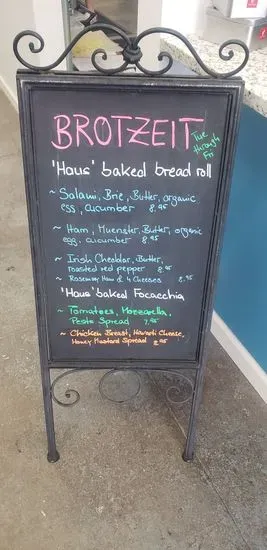 BROTZEIT
Tue
through
Fri
'Haus' baked bread roll
~ Salami, Brie, Butter, organic
egg, cucumber 8.95
~ Ham, Muenster, Butter, organic
egg, cucumber 8.95
~ Irish Cheddar, Butter,
roasted red pepper 8.95
~ Rosemary Ham & 4 Cheeses 8.95
'Haus' baked Focaccia
~ Tomatoes, Mozzarella,
Pesto Spread 7.95
~ Chicken Breast, Havarti Cheese,
Honey Mustard Spread 8.95